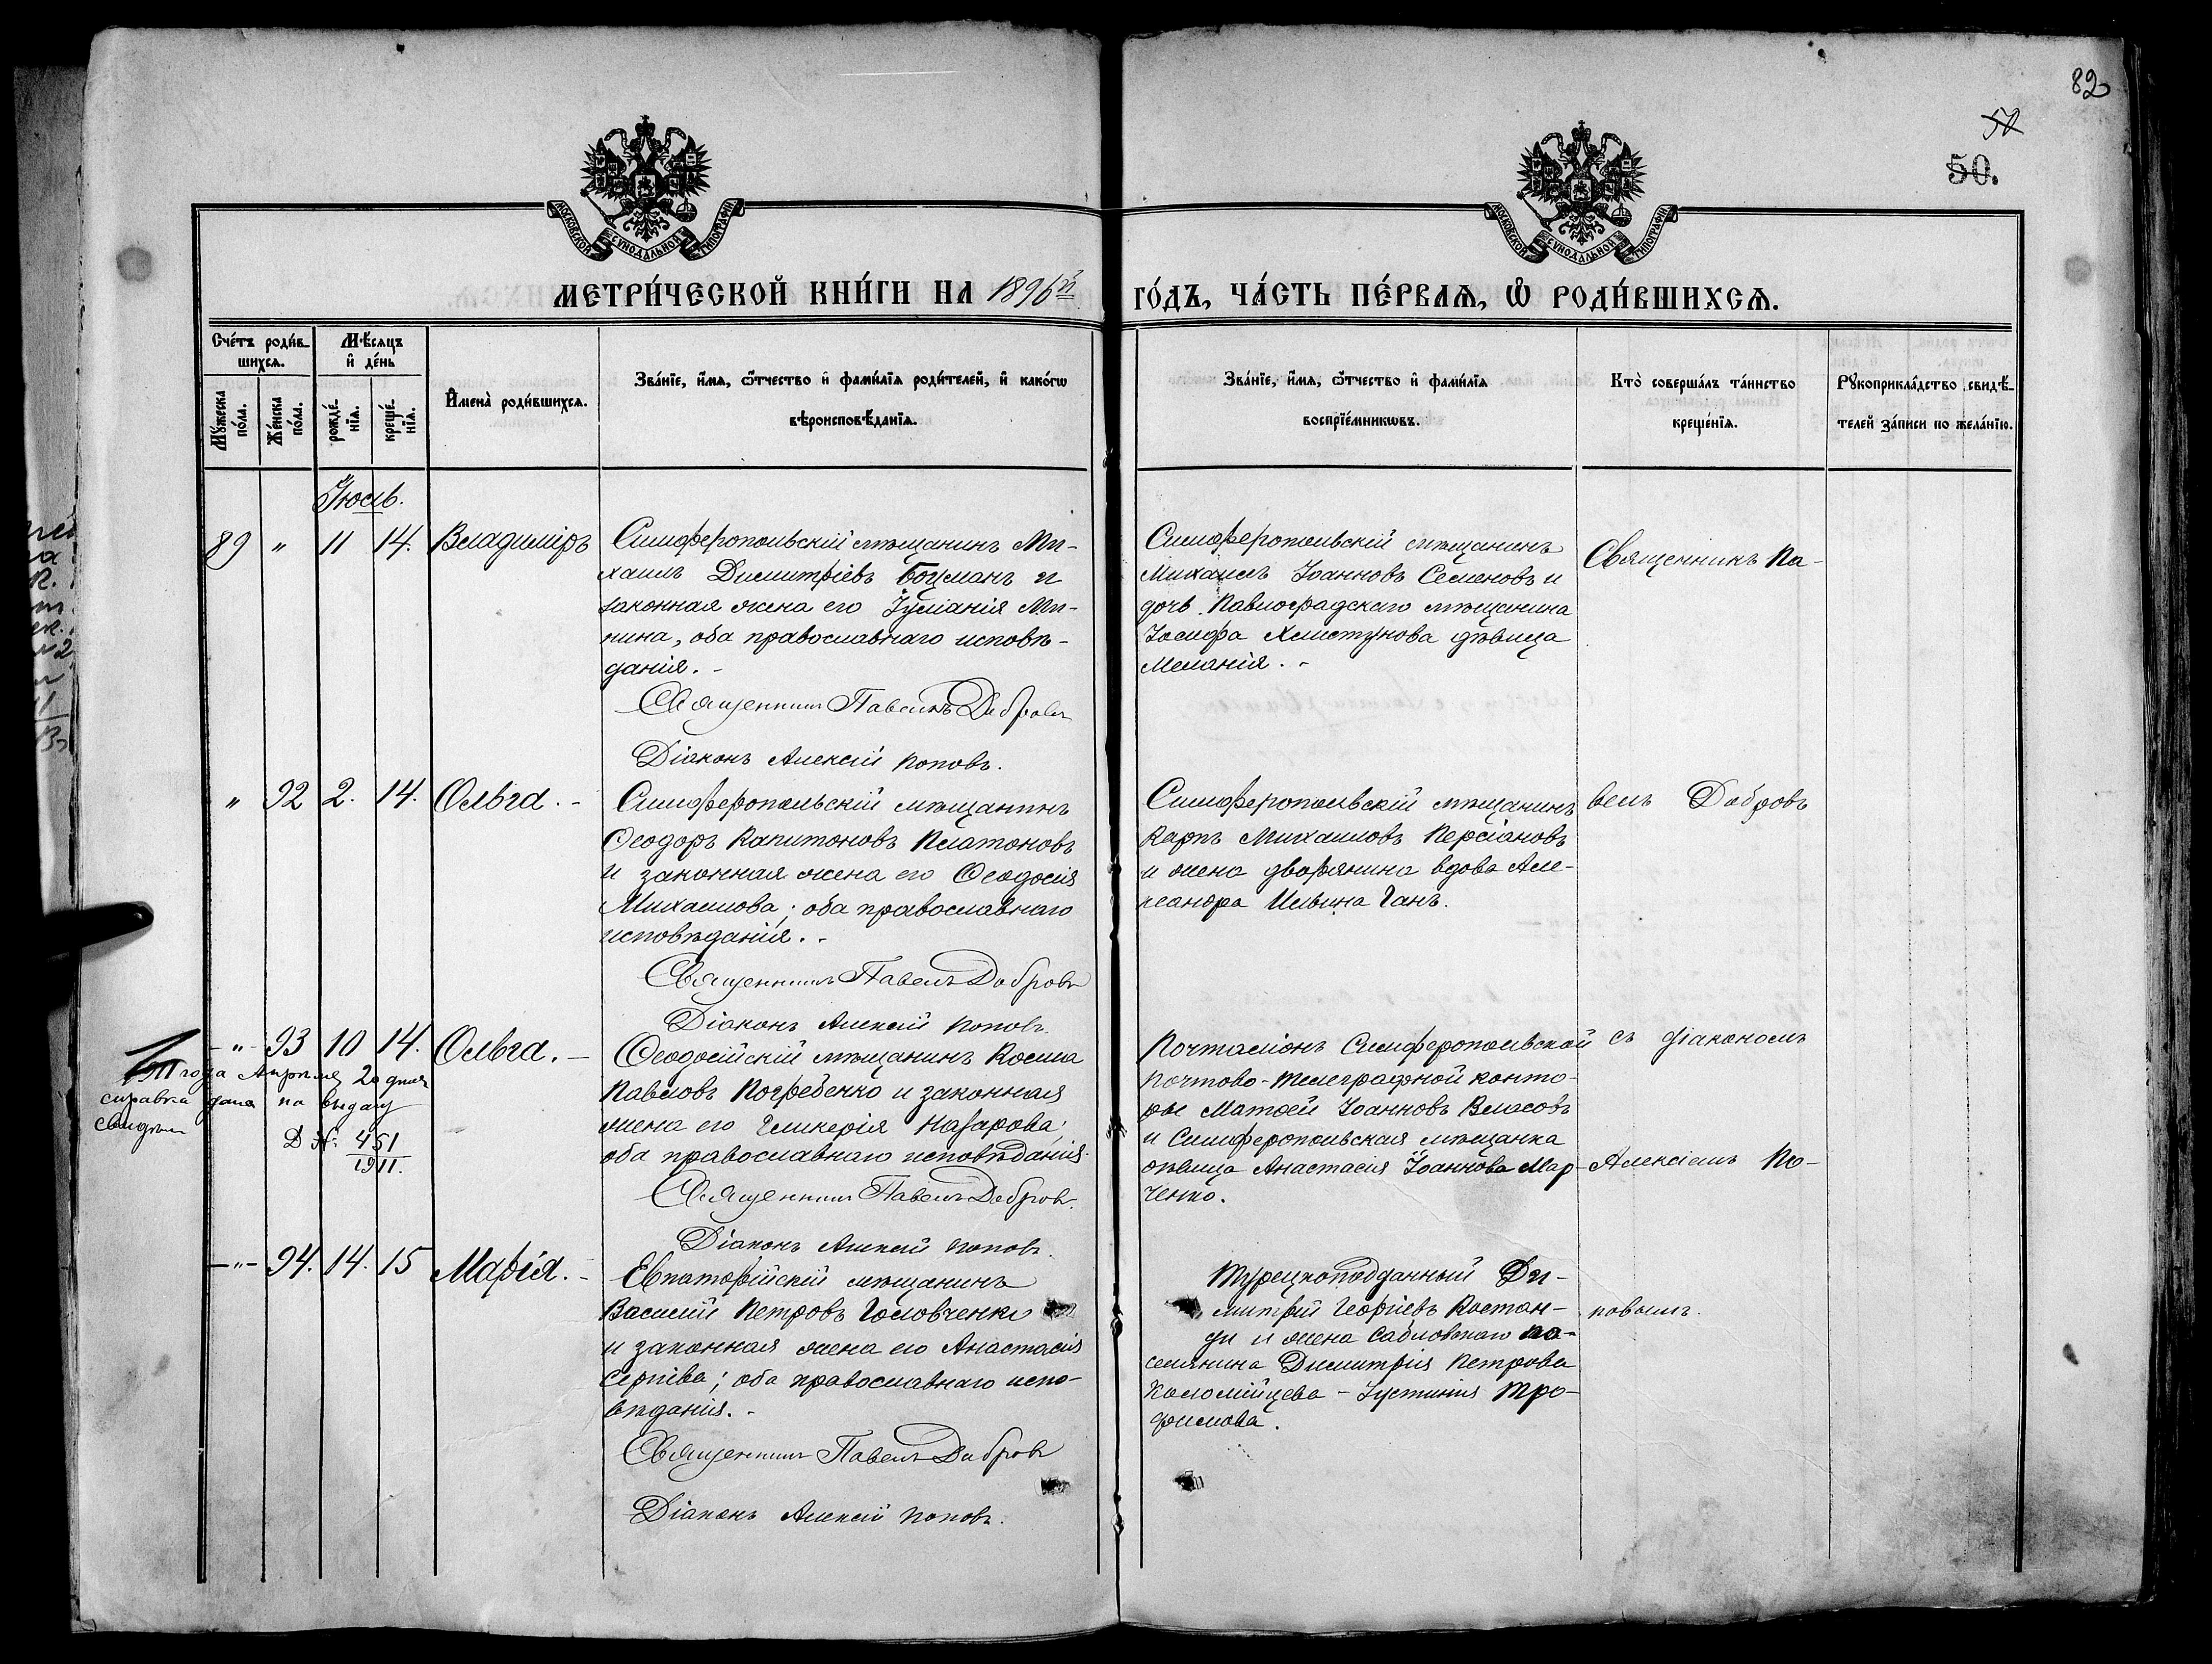 82
50
50.
МОСКОВСКОЙ СѴНОДАЛЬНОЙ ТИПОГРАФІИ
МОСКОВСКОЙ СѴНОДАЛЬНОЙ ТИПОГРАФІИ
МЕТРИ́ЧЕСКОЙ КНИ́ГИ НА 1896й
ГО́ДЪ, ЧА́СТЬ ПЕ́РВАѦ, Ѡ РОДИ́ВШИХСѦ.
Сче́тъ роди́в-
шихсѧ.
Мѣ́сяцъ
и҆ де́нь
Мꙋ́жеска по́ла.
Же́нска по́ла.
рожде́-
нїѧ.
креще́-
нїѧ.
И҆мена̀ роди́вшихсѧ.
Зва́нїе, и҆́мѧ, ѻ҆́тчество и҆ фами́лїѧ роди́телей, и҆ како́гѡ
вѣроисповѣ́данїѧ.
Зва́нїе, и҆́мѧ, ѻ҆́тчество и҆ фами́лїѧ
воспрїе́мникѡвъ.
Кто̀ соверша́лъ та́инство
креще́нїѧ.
Рꙋкоприкла́дство свидѣ́-
телей за́писи по жела́нїю.
Іюль.
89 " 11 14. Владиміръ
Симферопольскій мѣщанинъ Ми-
хаилъ Димитріевъ Боцманъ и
законная жена его Іуліанія Ми-
нина, оба православнаго исповѣ-
данія. -
Священникъ Павелъ Добровъ
Діаконъ Алексій Поповъ.
Симферопольскій мѣщанинъ
Михаилъ Іоанновъ Семеновъ и
дочь Павлоградскаго мѣщанина
Іосифа Хлистунова дѣвица
Меланія. -
Священникъ Па-
" 92 2. 14. Ольга. -
Симферопольскій мѣщанинъ
Ѳеодоръ Капитоновъ Платоновъ
и законная жена его Ѳеодосія
Михаилова; оба православнаго
исповѣданія. -
Священникъ Павелъ Добровъ
Діаконъ Алексій Поповъ.
Симферопольскій мѣщанинъ
Карпъ Михаиловъ Персіановъ
и жена дворянина вдова Але-
ксандра Ильина Ганъ.
велъ Добровъ
-"- 93 10 14. Ольга. -
1911 года Апрѣля 20 дня
справка дана на выдачу
свидѣт
Д № 451
1911.
Ѳеодосійскій мѣщанинъ Косма
Павловъ Погребенко и законная
жена его Гликерія Назарова;
оба православнаго исповѣданія.
Священникъ Павелъ Добровъ.
Діаконъ Алексій Поповъ.
Почталіонъ Симферопольской
почтово-телеграфной конто-
ры Матѳей Іоанновъ Власовъ
и Симферопольская мѣщанка
дѣвица Анастасія Іоаннова Мар-
ченко.
съ діакономъ
Алексіемъ По-
-"- 94. 14. 15 Марія. -
Евпаторійскій мѣщанинъ
Василій Петровъ Головченко
и законная жена его Анастасія
Сергіева; оба православнаго испо-
вѣданія. -
Священникъ Павелъ Добровъ
Діаконъ Алексій Поповъ.
Турецкоподданный Ди-
митрій Георгіевъ Костан-
ди и жена Сабловскаго по-
селянина Димитрія Петрова
Коломійцева - Іустинія Тро-
фимова.
повымъ.